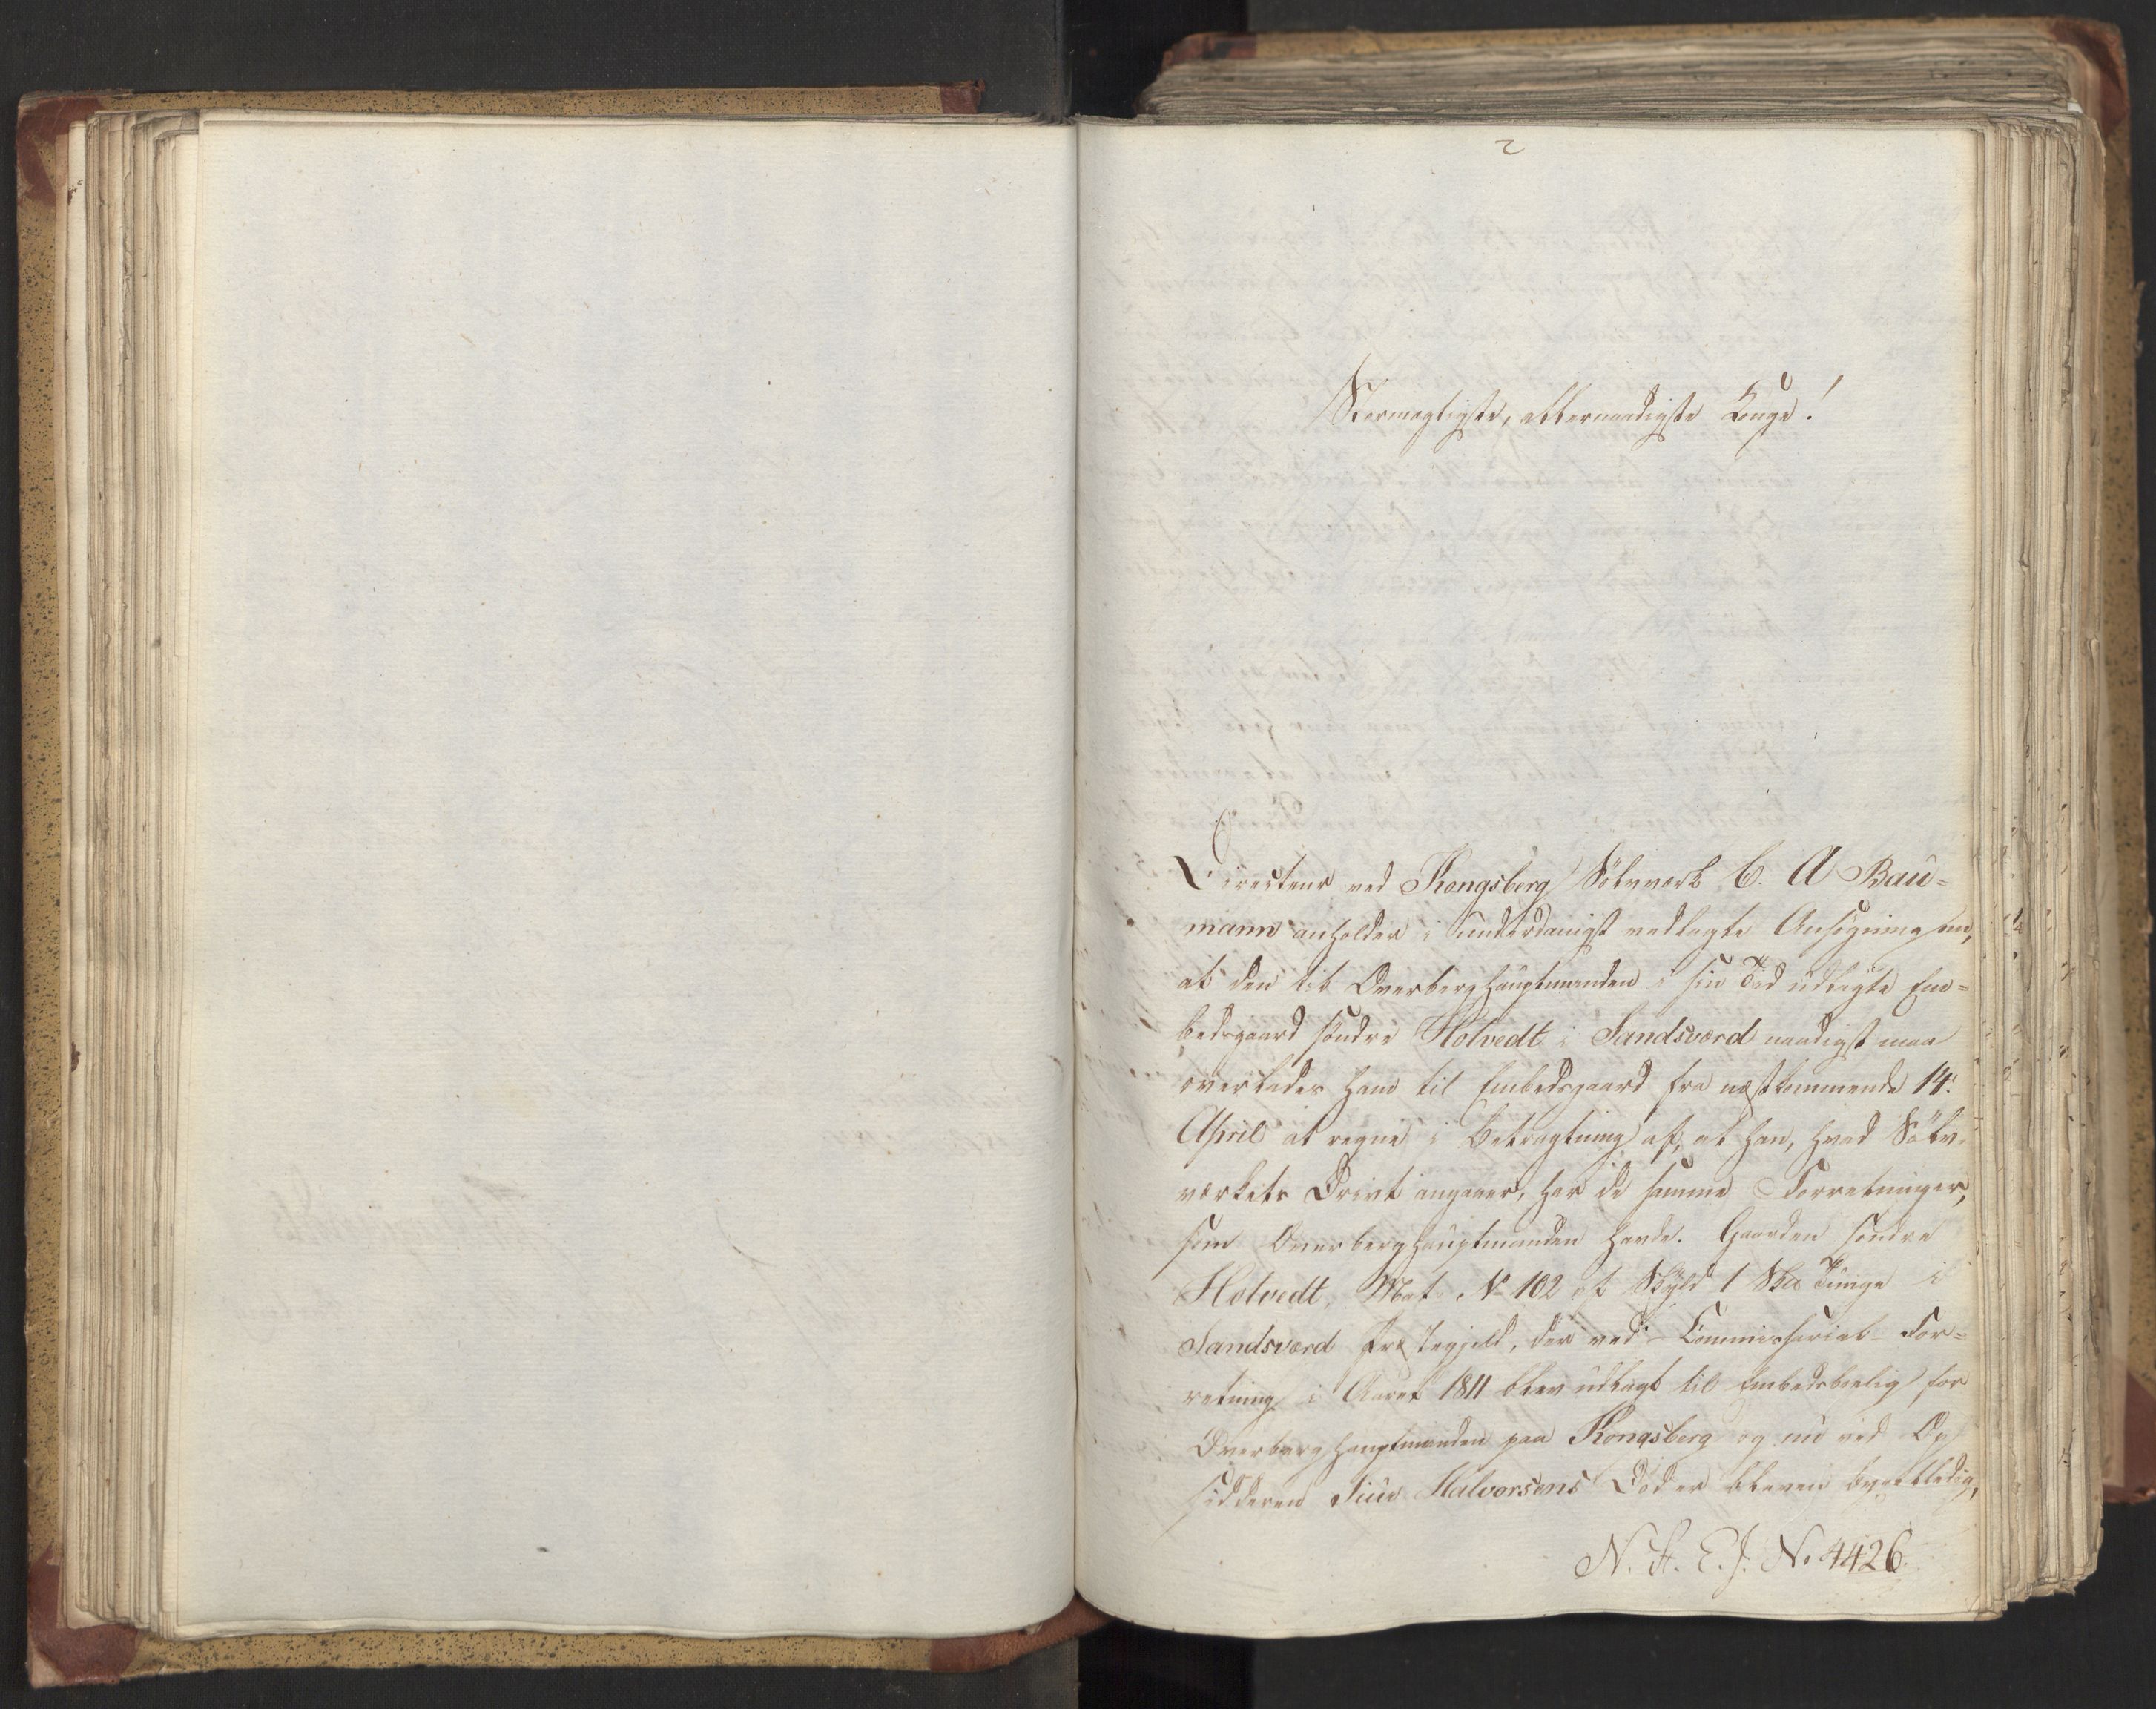 2
Stormægtigste, allernaadigste Konge!
Directeur ved Kongsberg Sölvværk C. A Bau=
mann anholder i underdanigst vedlagte Ansögning om,
at den til Overberghauptmanden i sin Tid udlagte Em=
bedsgaard söndre Holvedt i Sandsværd naadigst maa
overlades ham til Embedsgaard fra næstkommende 14.
April at regne i Betragtning af, at han, hvad Sölv-
værkets Drivt angaaer, har de samme Forretninger,
som Overberghauptmanden havde. Gaarden söndre
Holvedt, Mat. No 102 af Skyld 1 Tunge i
Sandsværd Præstegjeld, der ved Commissarial-For=
retning i Aaret 1811 blev udlagt til Embedsbolig for
Overberghauptmanden paa Kongsberg og nu ved Op
sidderen Halvorsens Död er bleven ledig,
N. R. E. J. No 4426.